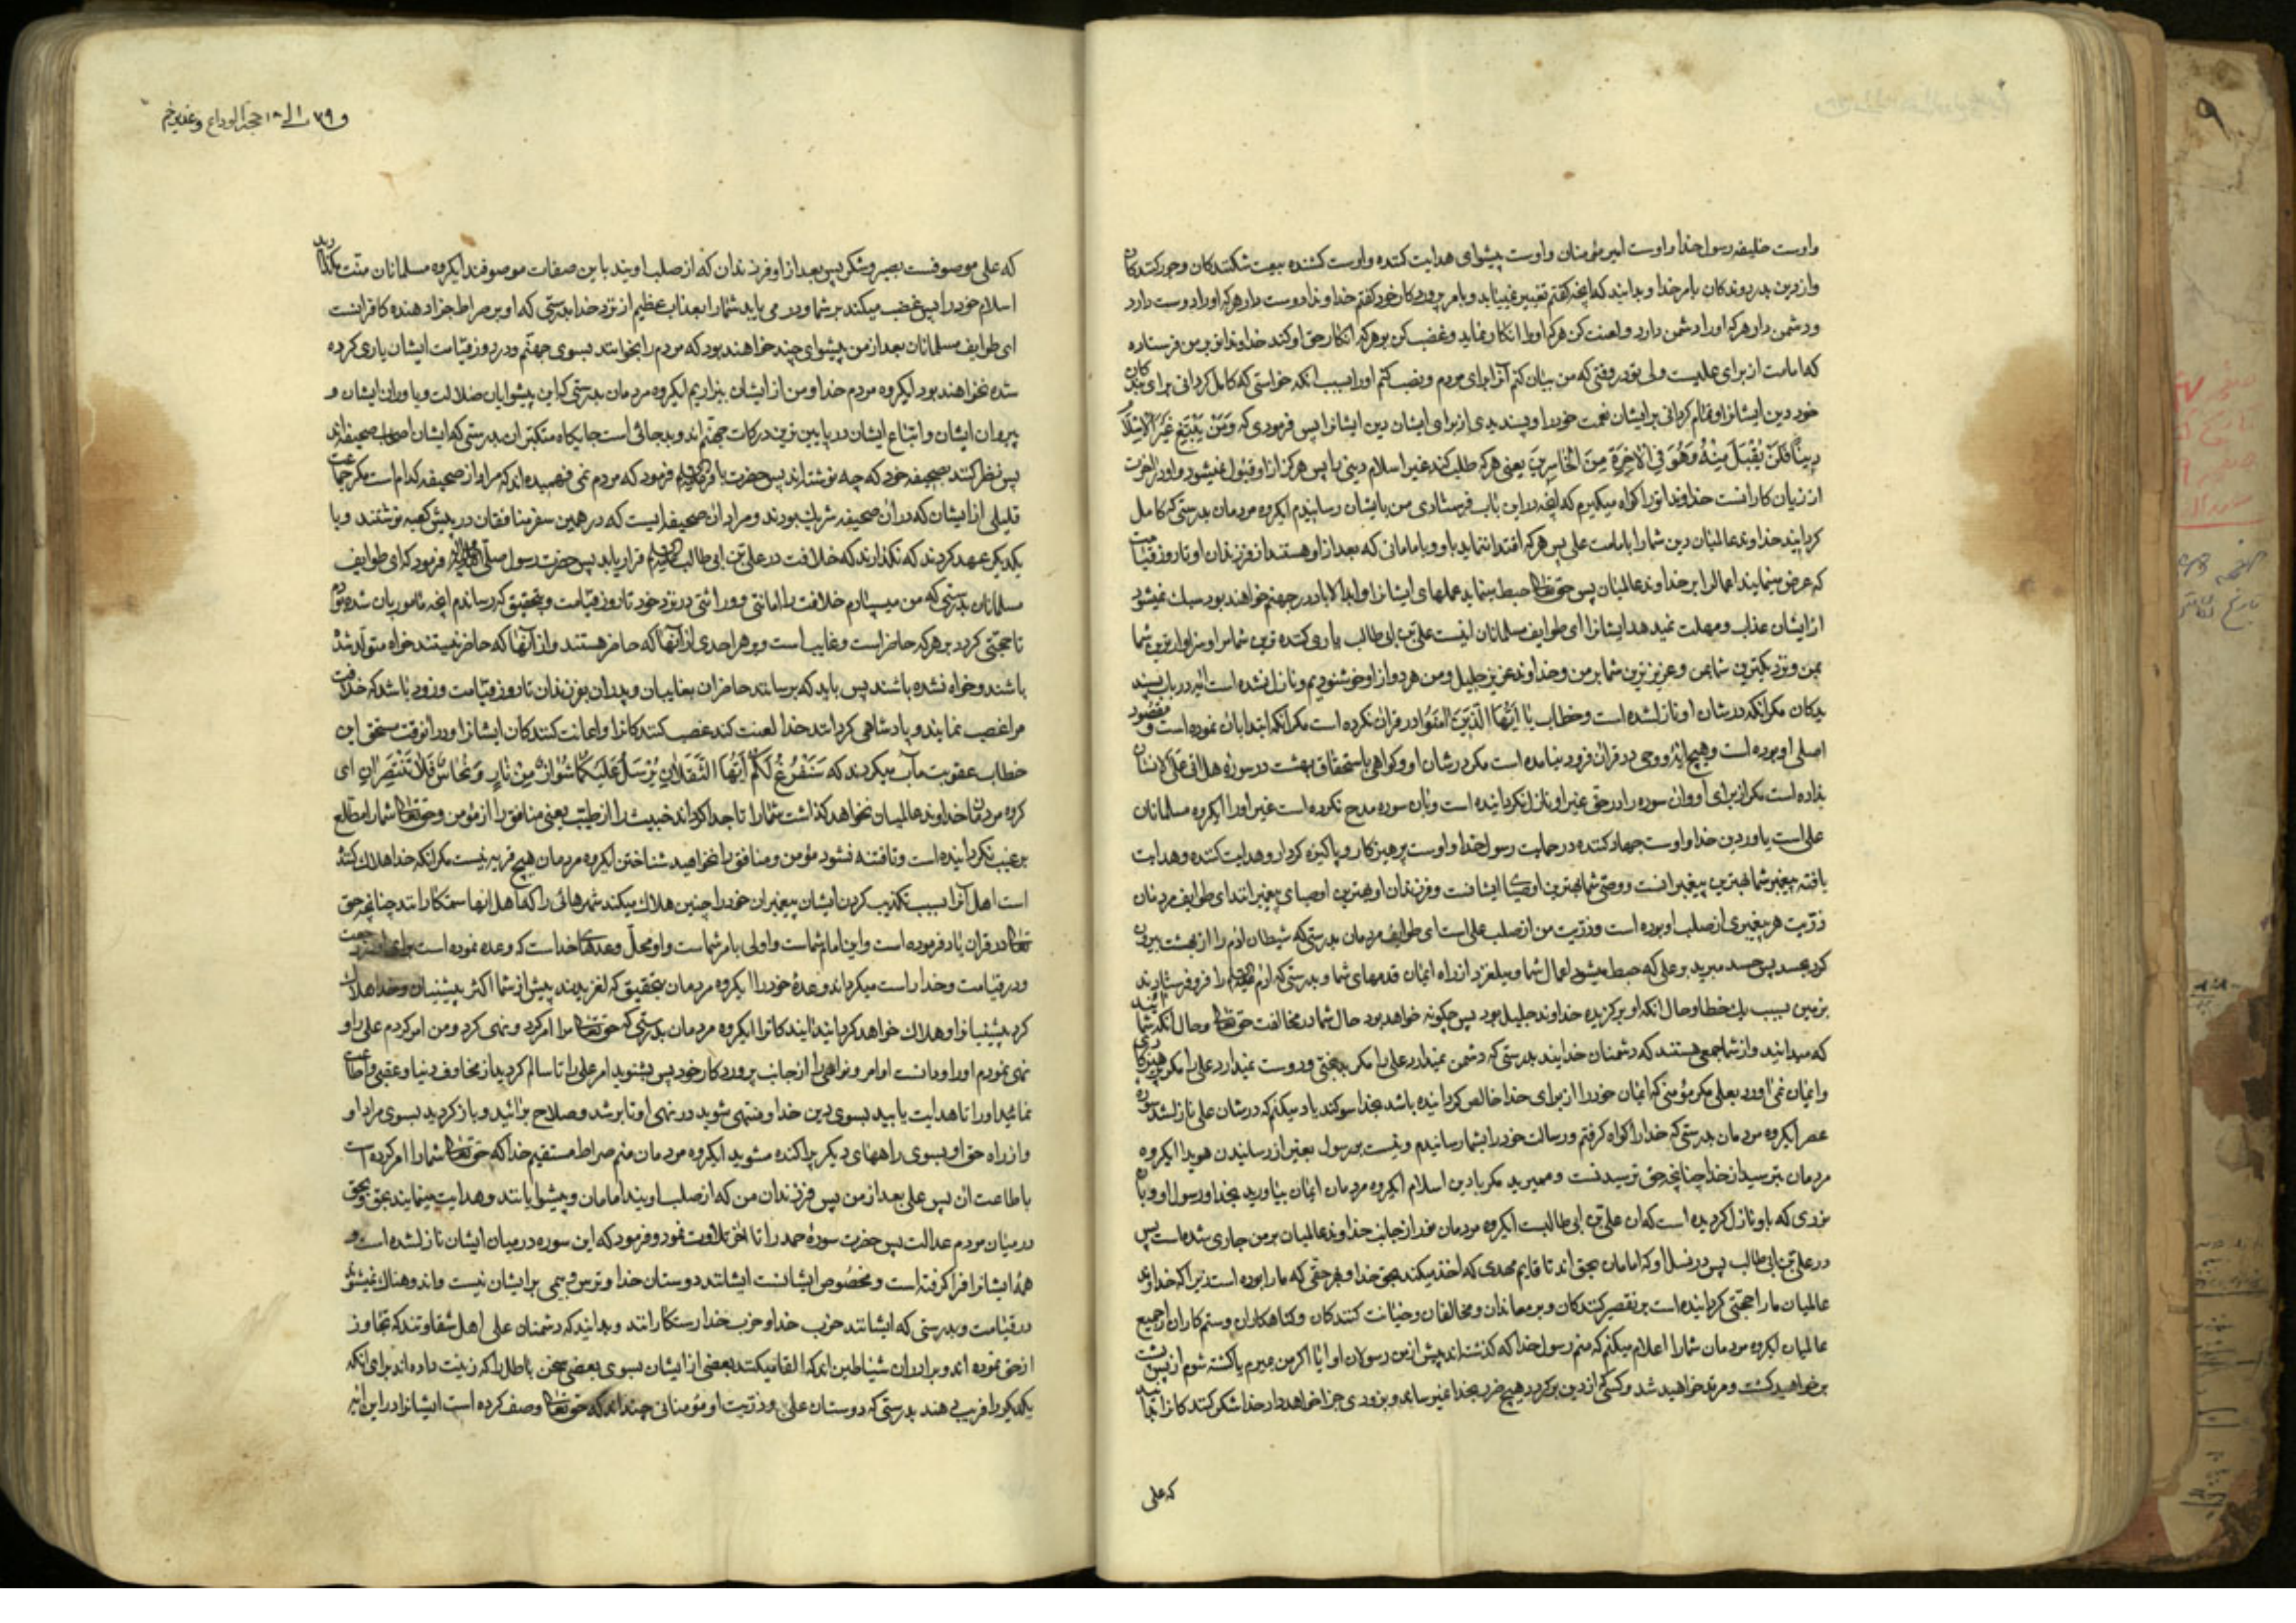 واوست خلیفه رسول خدا واوست امیر مؤمنان واوست پیشوای هدایت کننده واوست کشنده بیعت شکنندکان وجور کنندکان
واز دین بدر روندکان بامر خدا وبدانید که آنچه گفتم تغییر نمییابد وبامر پروردکار خود گفتم خداوندا دوست دار هرکه اورا دوست دارد
ودشمن دار هرکه اورا دشمن دارد ولعنت کن هرکه اورا انکار نماید وغضب کن بر هرکه انکار حق او کند خداوندا تو بر من فرستاده
که امامت از برای علیست ولی تو در وقتی که من بیان کنم آنرا برای مردم ونصب کنم اورا بسبب آنکه خواستی که کامل کردانی برای بندکان
خود دین ایشانرا وتمام کردانی بر ایشان نعمت خود را وپسندیدی از برای ایشان دین ایشانرا پس فرمودی که وَمَنْ یَبْتَغِ غَیْرَ الْاِسْلَامِ
دِینًا فَلَنْ یُقْبَلَ مِنْهُ وَهُوَ فِی الْآخِرَةِ مِنَ الْخَاسِرِینَ یعنی هرکه طلب کند غیر اسلام دینی را پس هرکز از او قبول نمیشود واو در آخرت
از زیان کارانست خداوندا تورا کواه میکیرم که آنچه در این باب فرستادی من بایشان رسانیدم ایکروه مردمان بدرستی که کامل
کردانید خداوند عالمیان دین شما را بامامت علی پس هرکه اقتدا ننماید باو وبامامانی که بعد از او هستند از فرزندان او تا روز قیامت
که عرض مینمایند اعمال را بر خداوند عالمیان پس حق تعالی حبط مینماید عملهای ایشانرا وابد الاباد در جهنم خواهند بود سبک نمیشود
از ایشان عذاب ومهلت نمیدهد ایشانرا ای طوایف مسلمانان اینست علی بن ابی طالب یاری کننده ترین شما مرا وسزاوارترین شما
بمن ونزدیکترین شما بمن وعزیزترین شما بر من وخداوند عزیز جلیل ومن هر دو از او خوشنودیم ونازل نشده است آیه در باب پسند
یدکان مکر آنکه در شان او نازل شده است وخطاب یَا اَیُّهَا الَّذِینَ آمَنُوا در قران نکرده است مکر آنکه ابتدا بان نموده است ومقصود
اصلی او بوده است وهیچ آیه ووحی در قران فرود نیامده است مکر در شان او وکواهی باستحقاق بهشت در سوره هل اتی علی الانسان
نداده است مکر از برای او وان سوره را در حق غیر او نازل نکردانیده است وبان سوره مدح نکرده است غیر اورا ایکروه مسلمانان
علی است یاور دین خدا واوست جهاد کننده در حمایت رسول خدا واوست پرهیزکار وپاکیزه کردار وهدایت کننده وهدایت
یافته پیغمبر شما بهترین پیغمبرانست ووصی شما بهترین اوصیا ایشانست وفرزندان او بهترین اوصیای پیغمبرانند ای طوایف مردمان
ذریت هر پیغمبری از صلب او بوده است وذریت من از صلب علی است ای طوایف مردمان بدرستی که شیطان آدم را از بهشت بیرون
کرد بحسد پس حسد مبرید بر علی که حبط میشود اعمال شما ومیلغزد از راه ایمان قدمهای شما وبدرستی که آدم علیه السلام را فرو فرستادند
بزمین بسبب یک خطا وحال آنکه او برکزیده خداوند جلیل بود پس چکونه خواهد بود حال شما در مخالفت حق تعالی وحال آنکه شما
که میدانید واز شما جمعی هستند که دشمنان خدایند بدرستی که دشمن نمیدارد علی را مکر بدبختی ودوست نمیدارد علی را مکر پرهیزکاری
وایمان نمی آورد بعلی مکر مؤمنی که ایمان خود را از برای خدا خالص کردانیده باشد بخدا سوکند یاد میکنم که در شان علی نازل شد سوره
عصر ایکروه مردمان بدرستی که خدا را کواه کرفتم ورسالت خود را بشما رسانیدم ونیست بر رسول بغیر از رسانیدن هویدا ایکروه
مردمان بترسید از خدا چنانچه حق ترسیدنست ومیرید مکر با دین اسلام ایکروه مردمان ایمان بیاورید بخدا ورسول او وبان
نوری که باو نازل کردیده است که آن علی بن ابی طالبست ایکروه مردمان نور از جانب خداوند عالمیان بر من جاری شده است پس
در علی بن ابی طالب پس در نسل او که امامان بحق اند تا قایم مهدی که اخذ میکند بحق خدا وهر حقی که مارا بوده است زیرا که خداوند
عالمیان مارا حجتی کردانیده است بر تقصیر کنندکان وبر معاندان ومخالفان وخیانت کنندکان وکناهکاران وستم کاران از جمیع
عالمیان ایکروه مردمان شما را اعلام میکنم که منم رسول خدا که کذشته اند پیش از من رسولان او آیا اکر من بمیرم یا کشته شوم از پس پشت
بر خواهید کشت ومرتد خواهید شد وکسی که از دین بر کردد هیچ ضرر بخدا نمیرساند وبزودی جزا خواهد داد خدا شکر کنندکانرا بدانید
که علی
۱۸ حجة الوداع وغدیر خم
که علی موصوفست بصبر وشکر پس بعد از او فرزندان که از صلب اویند باین صفات موصوفند ایکروه مسلمانان منت مکذارید
اسلام خود را پس غضب میکند بر شما ودر می یابد شما را بعذاب عظیم از نزد خدا بدرستی که او بر صراط جزا دهنده کافرانست
ای طوایف مسلمانان بعد از من پیشوای چند خواهند بود که مردم را بخوانند بسوی جهنم ودر روز قیامت ایشان یاری کرده
شده نخواهند بود ایکروه مردم خدا ومن از ایشان بیزاریم ایکروه مردمان بدرستی که این پیشوایان ضلالت ویاوران ایشان و
پیروان ایشان واتباع ایشان در پایین ترین درکات جهنم اند وبد جائی است جایکاه متکبران بدرستی که ایشان اصحاب صحیفه اند
پس نظر کنند بصحیفه خود که چه نوشته اند پس حضرت باقر علیه السلام فرمود که مردم نمی فهمیده اند که مراد از صحیفه کدام است مکر جماعت
قلیلی از ایشان که در آن صحیفه شریک بودند ومراد آن صحیفه ایست که در همین سفر منافقان در پیش کعبه نوشتند وبا
یکدیکر عهد کردند که نکذارند که خلافت در علی بن ابی طالب علیه السلام قرار یابد پس حضرت رسول صلی الله علیه وآله فرمود که ای طوایف
مسلمانان بدرستی که من میسپارم خلافت را امانتی ووراثتی در نزد خود تا روز قیامت وبتحقیق که رساندم آنچه مامور بان شده بودم
تا حجتی کردد بر هرکه حاضر است وغایب است وبر هر احدی از آنها که حاضر هستند واز آنها که حاضر نیستند خواه متولد شده
باشند وخواه نشده باشند پس باید که برسانند حاضران بغایبان وپدران بفرزندان تا روز قیامت وزود باشد که خلافت
مرا غصب نمایند وپادشاهی کردانند خدا لعنت کند غصب کنندکانرا واعانت کنندکان ایشانرا ودر آنوقت مستحق این
خطاب عقوبت مآب میکردند که سَنَفْرُغُ لَکُمْ اَیُّهَا الثَّقَلَانِ یُرْسَلُ عَلَیْکُمَا شُوَاظٌ مِنْ نَارٍ وَنُحَاسٌ فَلَا تَنْتَصِرَانِ ای
کروه مردمان خداوند عالمیان نخواهد کذاشت شما را تا جدا کرداند خبیث را از طیب یعنی منافق را از مؤمن وحق تعالی شما را مطلع
بر غیب نکردانیده است وتا فتنه نشود مؤمن ومنافق را نخواهید شناختن ایکروه مردمان هیچ قریه نیست مکر آنکه خدا هلاک کننده
است اهل آنرا بسبب تکذیب کردن ایشان پیغمبران خود را وچنین هلاک میکند شهرهائی را که اهل انها ستمکارانند چنانچه حق
تعالی در قران یاد فرموده است واین امام شماست واولی بامر شماست واو محل وعدهای خداست که وعده نموده است
ودر قیامت وخدا راست میکرداند وعدهٔ خود را ایکروه مردمان بتحقیق که لغزیدند پیش از شما اکثر پیشینیان وخدا هلاک
کرد پیشینیانرا وهلاک خواهد کردانید آیندکانرا ایکروه مردمان بدرستی که حق تعالی مرا امر کرد ونهی کرد ومن امر کردم علی را و
نهی نمودم اورا ودانست اوامر ونواهی را از جانب پروردکار خود پس بشنوید امر علی را تا سالم کردید از مخاوف دنیا وعقبی واطاعت
نمائید اورا تا هدایت یابید بسوی دین خدا ومنتهی شوید در نهی او تا برشد وصلاح برآئید وباز کردید بسوی مراد او
واز راه حق او بسوی راههای دیکر پراکنده مشوید ایکروه مردمان منم صراط مستقیم خدا که حق تعالی شما را امر کرده است
باطاعت ان پس علی بعد از من پس فرزندان من که از صلب اویند امامان وپیشوایانند وهدایت مینمایند بحق وبحق
در میان مردم عدالت پس حضرت سورهٔ حمد را تا آخر تلاوت نمود وفرمود که این سوره در میان ایشان نازل شده است و
همهٔ ایشانرا فرا کرفته است ومخصوص ایشانست ایشانند دوستان خدا وترس وبیمی بر ایشان نیست واندوهناک نمیشوند
در قیامت وبدرستی که ایشانند حزب خدا وحزب خدا رستکارانند وبدانید که دشمنان علی اهل شقاوتند که تجاوز
از حق نموده اند وبرادران شیاطین اند که القا میکنند بعضی از ایشان بسوی بعضی سخن باطل را که زینت داده اند برای آنکه
یکدیکر را فریب دهند بدرستی که دوستان علی وذریت او مؤمنانی چند اند که حق تعالی وصف کرده است ایشانرا در این آیه